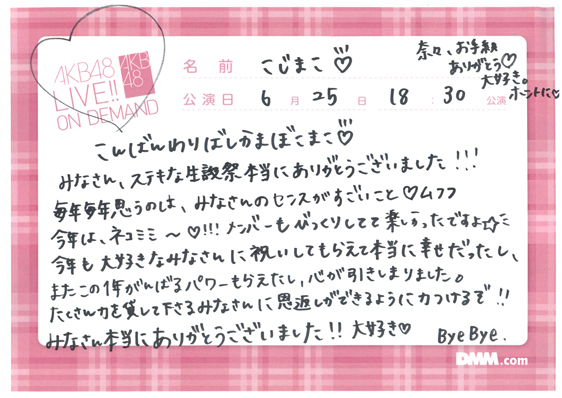 AKB48
LIVE!!
ON DEMAND
AKB
48
名前 こじまこ♡
奈々、お手紙
ありがとう♡
大好き。
ホントに♡
公演日 6月25日 18:30 公演
こんばんわりばしかまぼこまこ♡
みなさん、ステキな生誕祭本当にありがとうございました!!!
毎年毎年思うのは、みなさんのセンスがすごいこと♡ムフフ
今年は、ネコミミ〜♡!!! メンバーもびっくりしてて楽しかったですよ☆
今年も大好きなみなさんに祝いしてもらえて本当に幸せだったし、
またこの1年がんばるパワーもらえたし、心が引きしまりました。
たくさん力を貸して下さるみなさんに恩返しができるように力つけるぞ!!
みなさん本当にありがとうございました!! 大好き♡ Bye Bye.
DMM.com